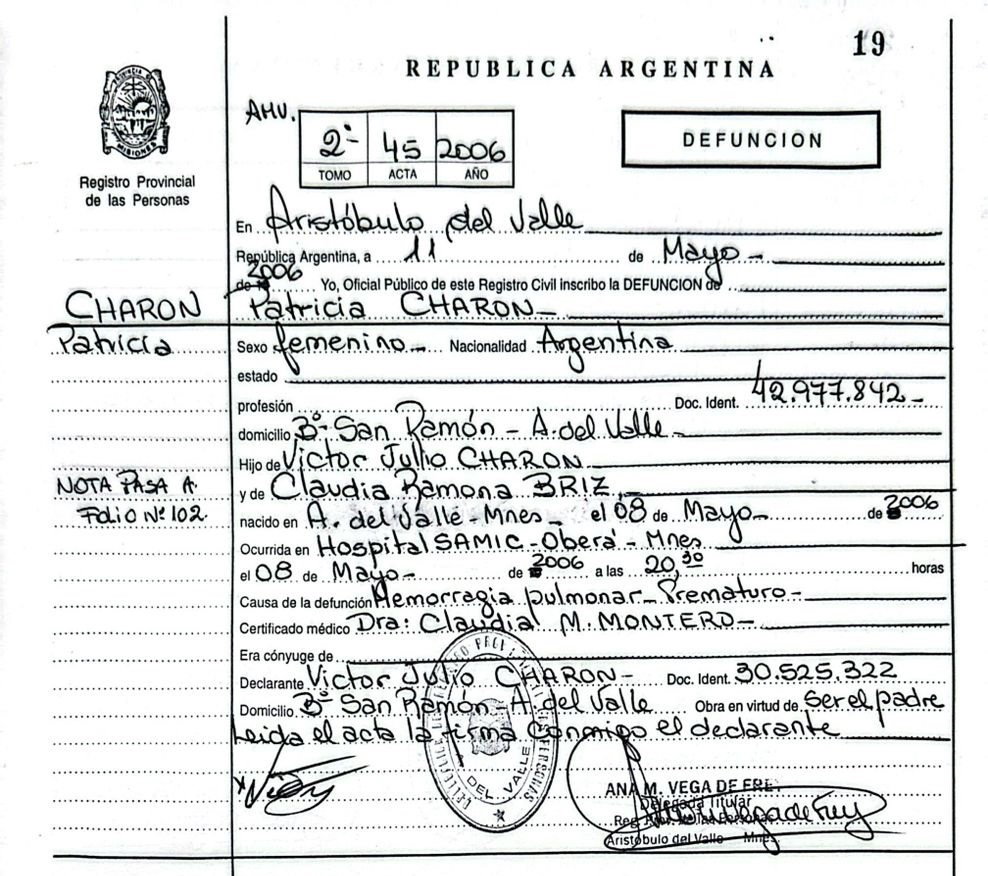 19
REPUBLICA ARGENTINA
AMU.
2º 45 2006
TOMO ACTA AÑO
DEFUNCION
PROVINCIA DE MISIONES
Registro Provincial
de las Personas
En Aristóbulo del Valle
República Argentina, a 11 de Mayo
2006
de Yo, Oficial Público de este Registro Civil inscribo la DEFUNCION de
CHARON
Patricia
Patricia CHARON
Sexo femenino Nacionalidad Argentina
estado
profesión Doc. Ident. 42.977.842
domicilio Bº San Ramón - A. del Valle
Hijo de Victor Julio CHARON
y de Claudia Ramona BRIZ
NOTA PASA A
FOLIO Nº 102.
nacido en A. del Valle - Mnes el 08 de Mayo de 2006
Ocurrida en Hospital SAMIC - Oberá - Mnes
el 08 de Mayo de 2006 a las 20,30 horas
Causa de la defunción Hemorragia pulmonar - Prematuro
Certificado médico Dra: Claudia M. MONTERO
Era cónyuge de
Declarante Victor Julio CHARON Doc. Ident. 30.525.322
Domicilio Bº San Ramón - A. del Valle Obra en virtud de ser el padre
Leida el acta la firma conmigo el declarante
DEL VALLE
ANA M. VEGA DE FREY
Delegada Titular
Aristóbulo del Valle - Mnes.